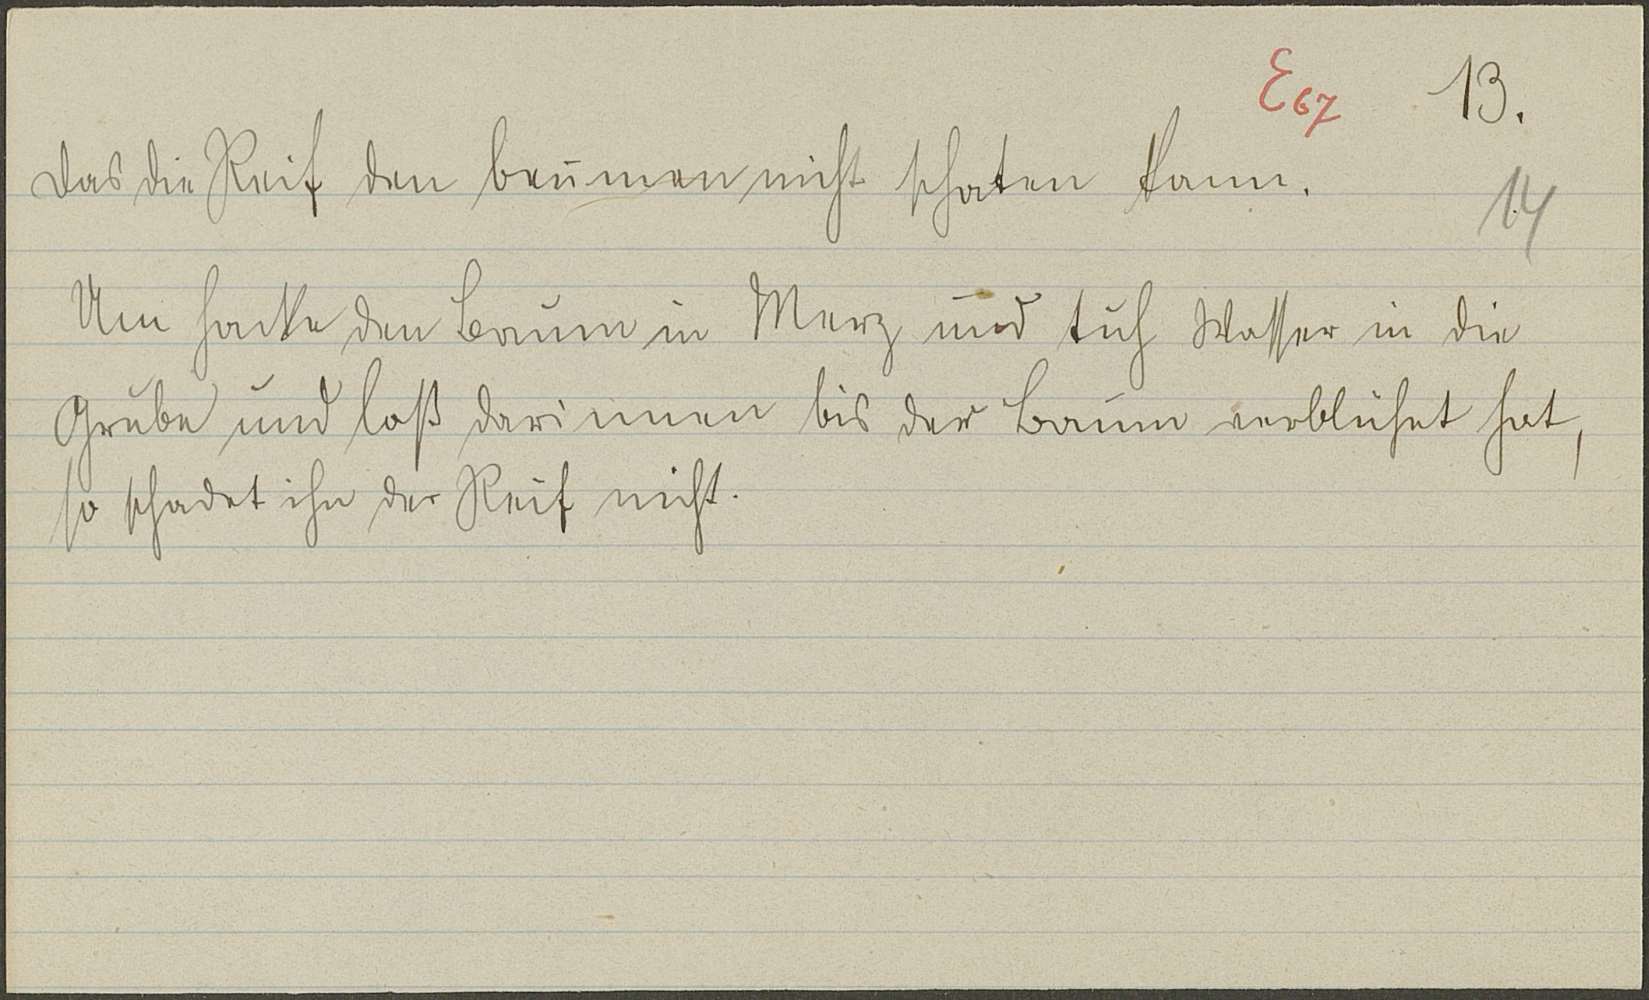 E67 13.
Das die Reif den beumen nicht schaten kann.
14
Um hacke den Baum in Merz und tuh Wasser in die
Grube und laß darinnen bis der Baum verblühet hat,
so schadet ihn der Reif nicht.